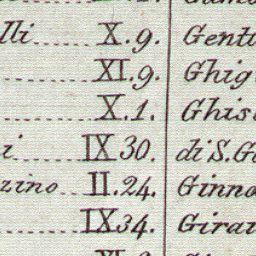 lli X.9. Gentu
XI.9. Ghig
X.1. Ghis
i IX 30. di S.G
zino II.24. Ginna
IX 34. Girau